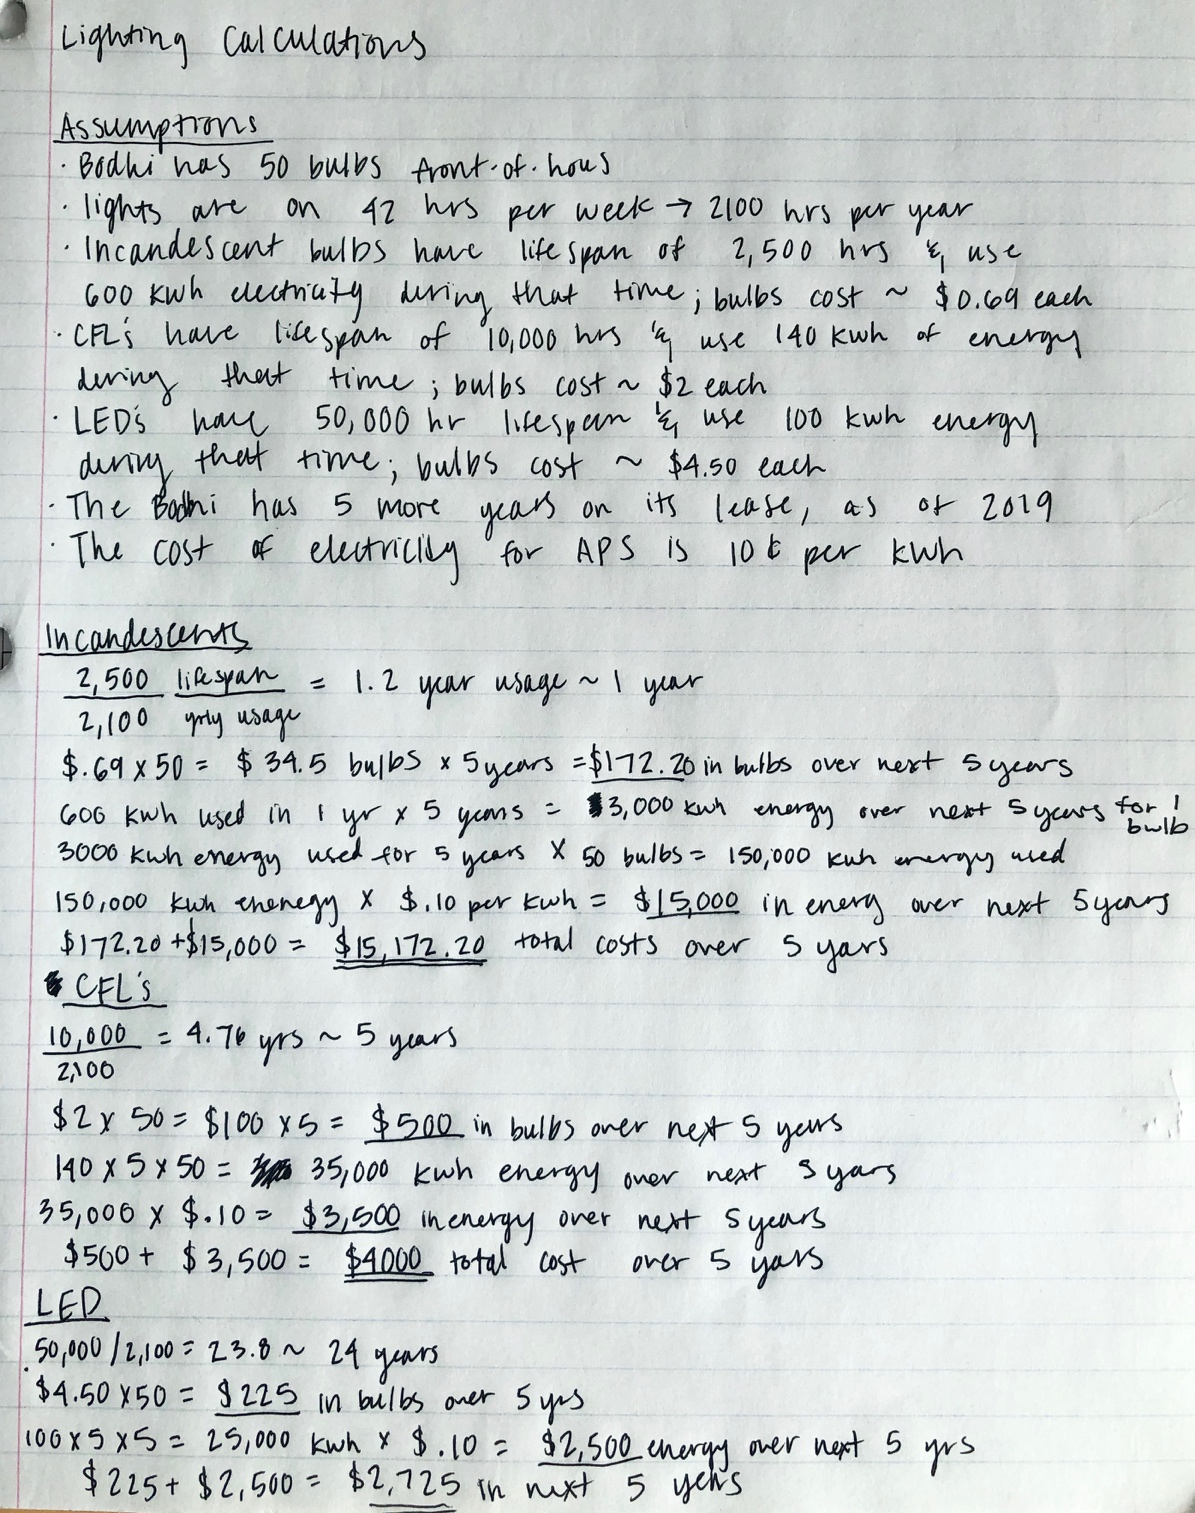 Lighting Calculations
Assumptions
· Bodhi has 50 bulbs front-of-hous
· lights are on 42 hrs per week → 2100 hrs per year
· Incandescent bulbs have lifespan of 2,500 hrs & use
600 kwh electricity during that time; bulbs cost ~ $0.69 each
· CFL's have lifespan of 10,000 hrs & use 140 kwh of energy
during that time; bulbs cost ~ $2 each
· LED's have 50,000 hr lifespan & use 100 kwh energy
during that time; bulbs cost ~ $4.50 each
· The Bodhi has 5 more years on its lease, as of 2019
· The cost of electricity for APS is 10¢ per kwh
Incandescents
2,500 lifespan = 1.2 year usage ~ 1 year
2,100 yrly usage
$.69 x 50 = $34.5 bulbs x 5 years = $172.20 in bulbs over next 5 years
600 kwh used in 1 yr x 5 years = 3,000 kwh energy over next 5 years for 1
bulb
3000 kwh energy used for 5 years x 50 bulbs = 150,000 kwh energy used
150,000 kwh enenegy x $.10 per kwh = $15,000 in energ over next 5 years
$172.20 + $15,000 = $15,172.20 total costs over 5 yars
CFL's
10,000 = 4.76 yrs ~ 5 years
2,100
$2 x 50 = $100 x 5 = $500 in bulbs over next 5 years
140 x 5 x 50 = 35,000 kwh energy over next 5 yars
35,000 x $.10 = $3,500 in energy over next 5 years
$500 + $3,500 = $4000 total cost over 5 yars
LED
50,000 / 2,100 = 23.8 ~ 24 years
$4.50 x 50 = $225 in bulbs over 5 yrs
100 x 5 x 5 = 25,000 kwh x $.10 = $2,500 energy over next 5 yrs
$225 + $2,500 = $2,725 in next 5 years